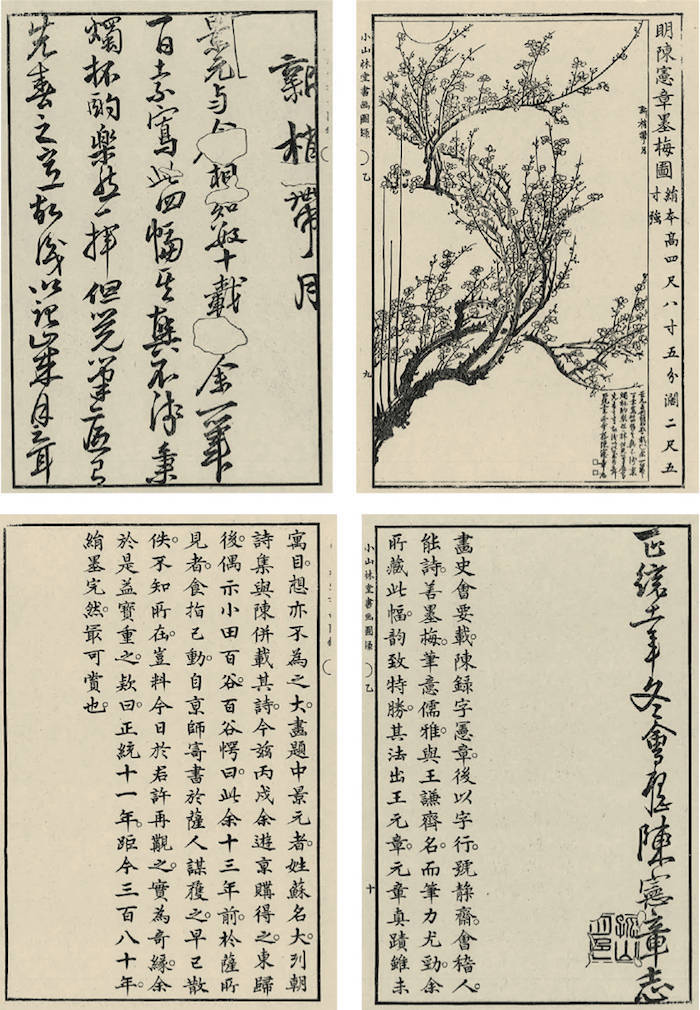 明陳憲章墨梅圖 絹本高四尺八寸五分濶二尺五
寸強
新梢帶月
小山林堂書画圖録 乙
九
新梢帶月
景元与 相知 十載 余一筆
一日索寫此四幅其興不淺秉
燭杯酌樂然一揮但覺筆底有
先春之意故識以記歲月云耳
乙
正統十一年冬會稽陳憲章志
畫史會要載陳録字憲章後以字行。號靜齋。會稽人。
能詩。善墨梅。筆意儒雅。與王謙齊名。而筆力尤勁。余
所藏此幅。韵致特勝。其法出王元章。元章真蹟雖未
小山林堂書画圖録 乙
十
寓目。想亦不為之大。畫題中景元者。姓蘇名大。列朝
詩集與陳併載其詩。今茲丙戌。余遊京購得之。東歸
後偶示小田百谷。百谷愕曰。此余十三年前。於薩所
見者。食指已動。自京師寄書於薩人謀獲之。早已散
佚。不知所在。豈料今日於君許再觀之。實為奇緣。余
於是益寶重之。欵曰。正統十一年。距今三百八十年。
絹墨完然。最可賞也。